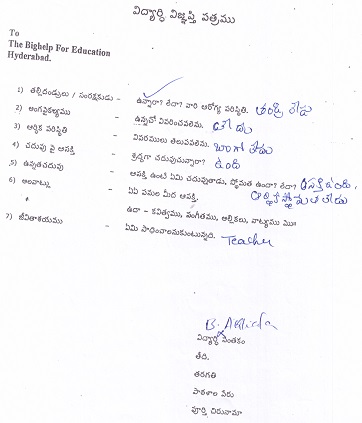 విద్యార్థి విజ్ఞప్తి పత్రము
To
The Bighelp For Education
Hyderabad.
1) తల్లిదండ్రులు / సంరక్షకుడు - ఉన్నారా? లేదా? వారి ఆరోగ్య పరిస్థితి. తండ్రి లేడు
2) అంగవైకల్యము - ఉన్నచో వివరించవలెను. లేదు
3) ఆర్థిక పరిస్థితి - వివరములు తెలుపవలెను. బాగా లేదు
4) చదువు పై ఆసక్తి - శ్రద్ధగా చదువుచున్నారా? ఉంది
5) ఉన్నతచదువు - ఆసక్తి ఉంటే ఏమి చదువుతాడు, స్తోమత ఉందా? లేదా? ఆసక్తి ఉంది,
6) అలవాట్లు - ఏఏ పనుల మీద ఆసక్తి. ఆర్థిక స్తోమత లేదు
ఉదా - కవిత్వము, సంగీతము, అల్లికలు, నాట్యము ము॥
7) జీవితాశయము - ఏమి సాధించాలనుకుంటున్నది. Teacher
B.
విద్యార్థి సంతకం
తేది.
తరగతి
పాఠశాల పేరు
పూర్తి చిరునామా